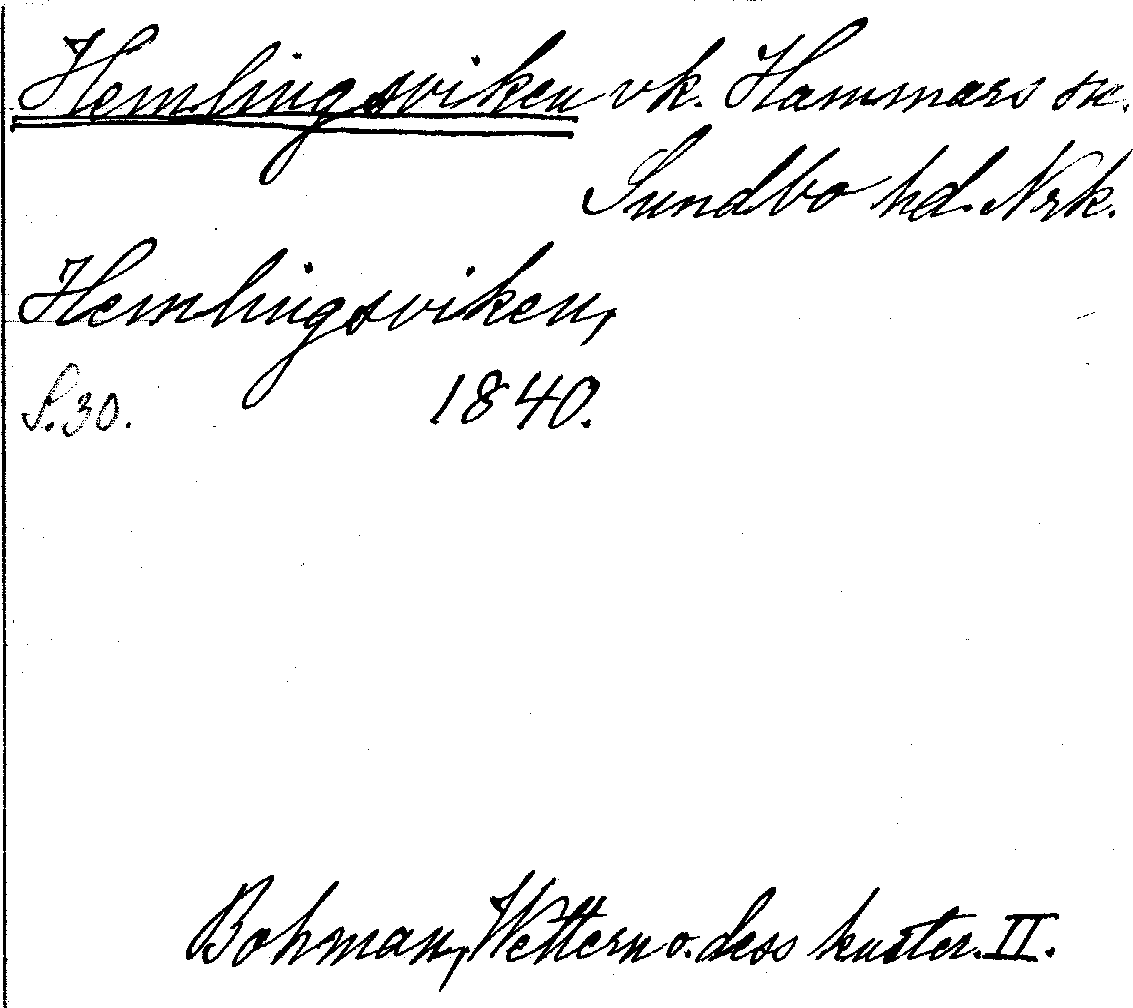 Hemlingsviken vk. Hammars sn.
Sundbo hd. Nrk.
Hemlingsviken,
S. 30. 1840.
Bohman, Wettern o. dess kuster. II.